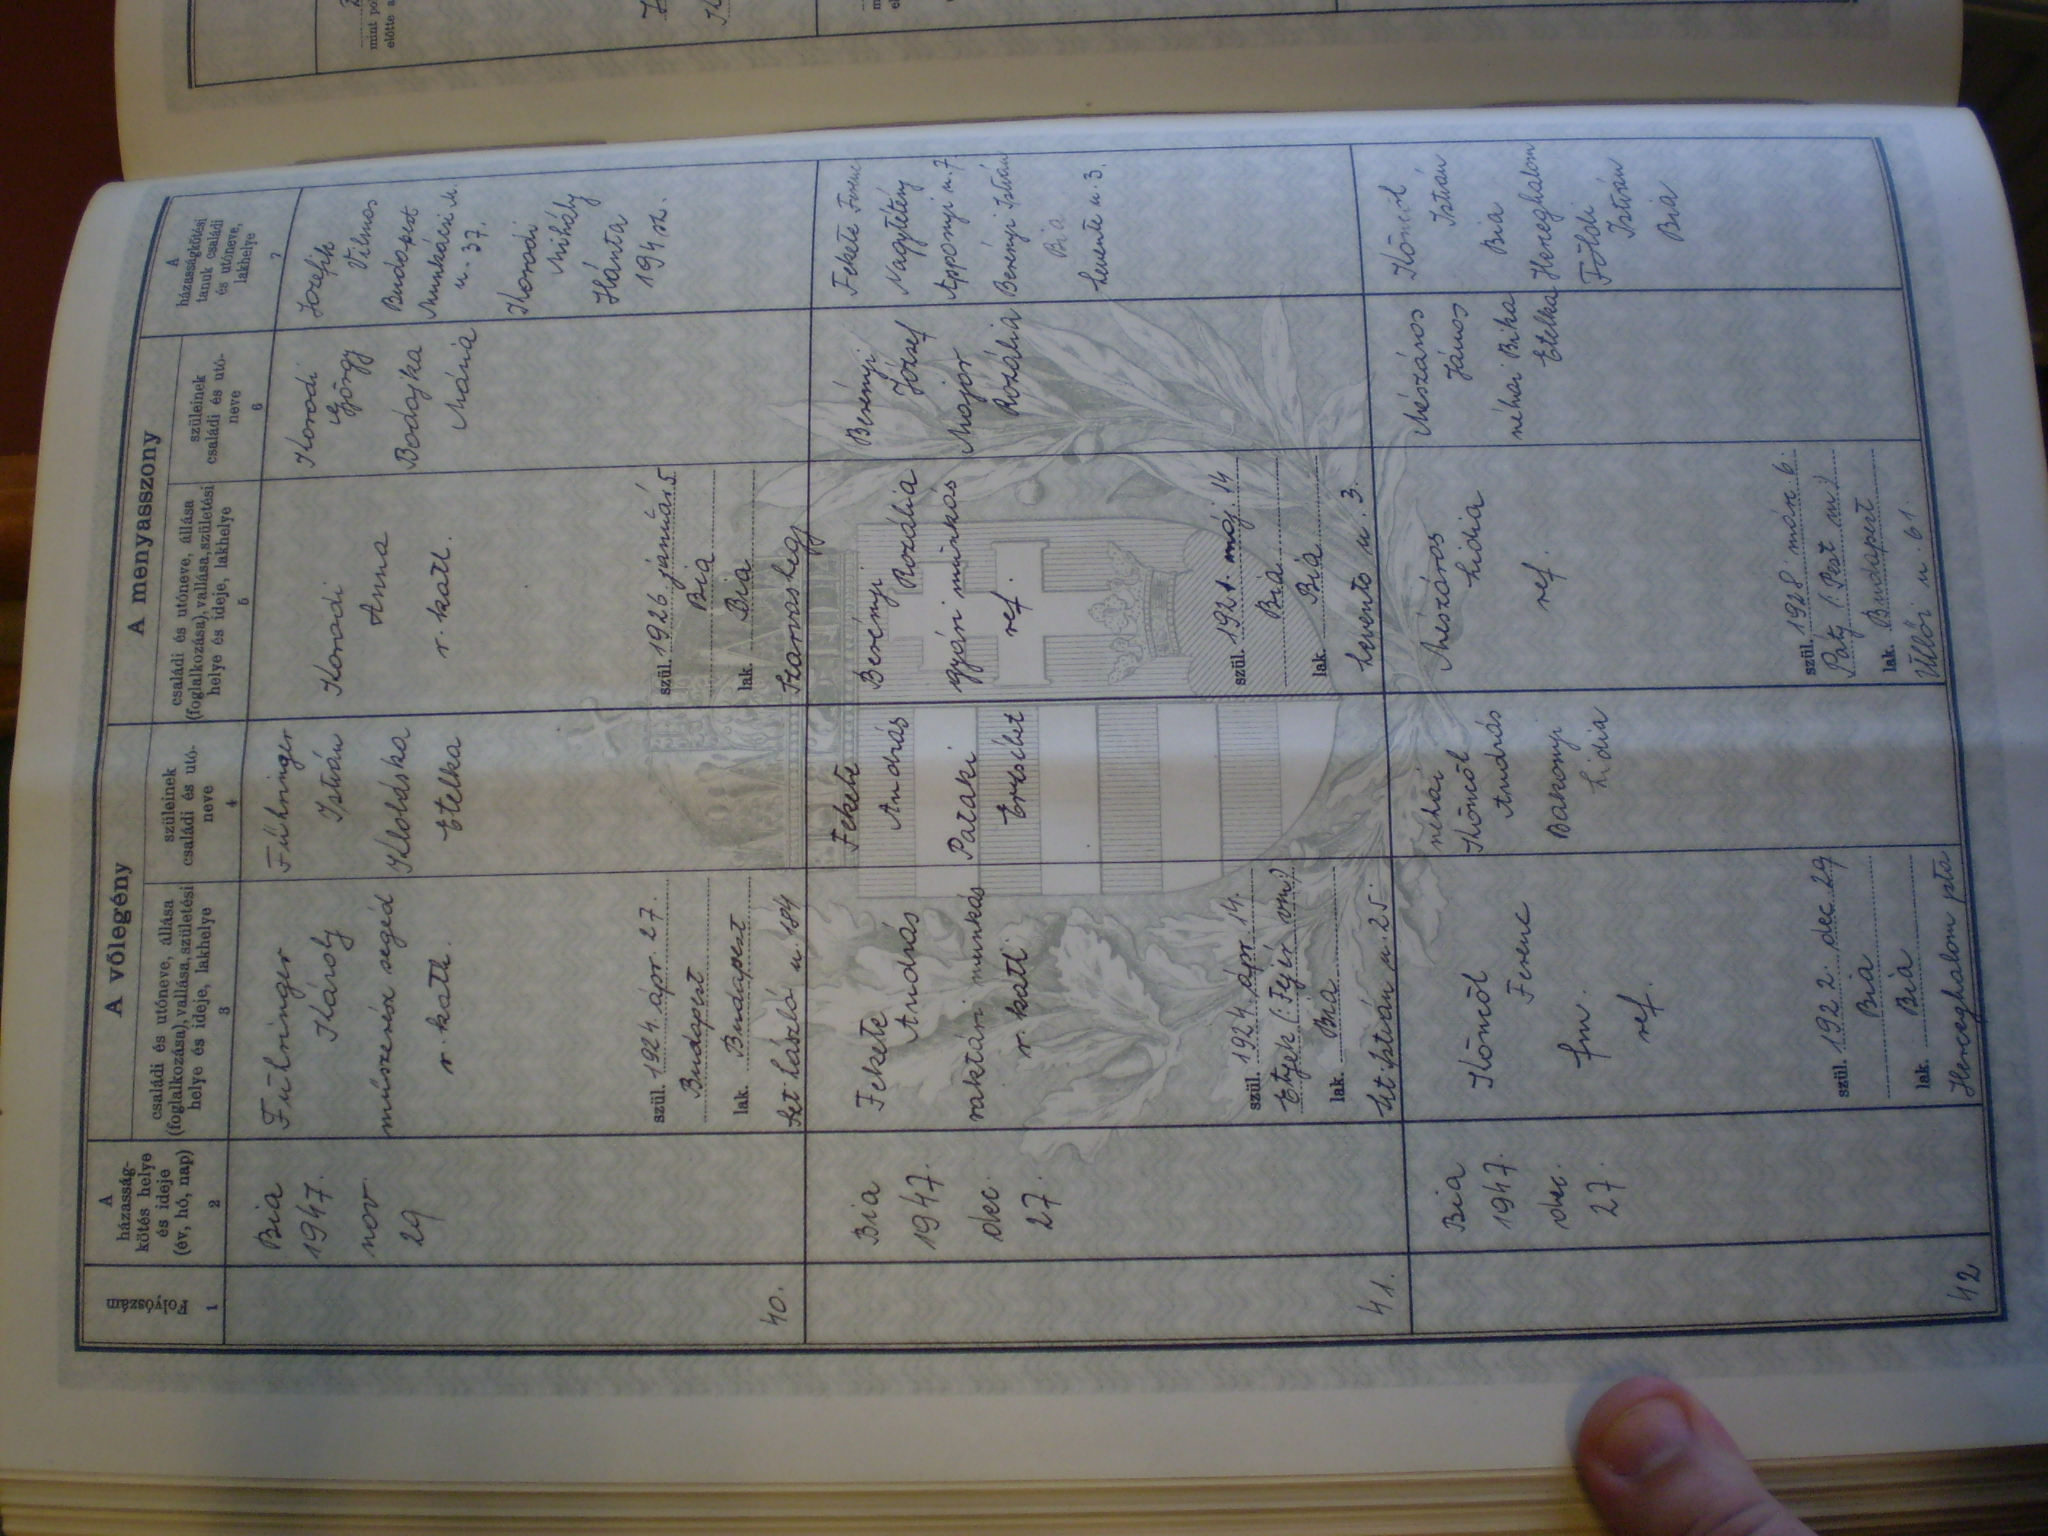 A vőlegény
A menyasszony
Folyószám
1
A
házasság-
kötés helye
és ideje
(év, hó, nap)
2
családi és utóneve, állása
(foglalkozása), vallása, születési
helye és ideje, lakhelye
3
szüleinek
családi és utó-
neve
4
családi és utóneve, állása
(foglalkozása), vallása, születési
helye és ideje, lakhelye
5
szüleinek
családi és utó-
neve
6
A
házasságkötési
tanuk családi
és utóneve,
lakhelye
7
40.
Bia
1947.
nov
29
Führinger
Károly
műszerész segéd
r. kath.
szül. 1924. ápr. 27.
Budapest
lak. Budapest
Szt László u. 184
Führinger
István
Klobáska
Etelka
Korodi
Anna
r. kath.
szül. 1926. január 5
Bia
lak. Bia
Szarvashegy
Korodi
György
Bodajka
Mária
Jozefik
Vilmos
Budapest
Munkácsi M.
u. 37.
Korodi
Mihály
Hánta
194 sz.
41.
Bia
1947.
dec.
27.
Fekete
András
raktári munkás
r. kath
szül. 1924. ápr. 14.
Etyek (: Fejér vm:)
lak. Bia
Szt. István u 25.
Fekete
András
Pataki
Erzsébet
Berényi
Rozália
gyári munkás
ref.
szül. 1921 máj. 14
Bia
lak. Bia
Levente u. 3.
Berényi
József
Major
Rozália
Fekete Ferenc
Nagytétény
Apponyi u. 7
Berényi István
Bia
Levente u. 3.
42
Bia
1947.
dec.
27.
Köncöl
Ferenc
fm.
ref.
szül. 1922. dec. 29
Bia
lak. Bia
Herceghalom pta
néhai
Köncöl
András
Bakonyi
Lidia
Mészáros
Lidia
ref.
szül. 1928. márc. 6.
Páty (: Pest m:)
lak. Budapest
Üllői u. 61.
Mészáros
János
néhai Bika
Etelka
Köncöl
István
Bia
Herceghalom
Földi
István
Bia
mint
előtte a